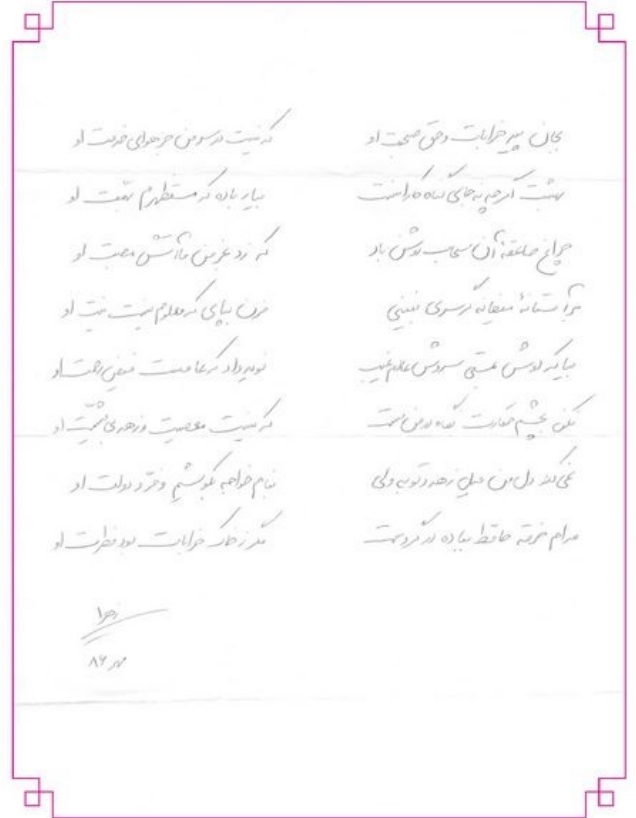 بجان پیر خرابات و حق صحبت او که نیست در سر من جز هوای خدمت او
بهشت اگر چه نه جای گناه کارانست بیار باده که مستظهرم بهمت او
چراغ صاعقهٔ آن سحاب روشن باد که زد بخرمن ما آتش محبت او
بر آستانهٔ میخانه گر سری بینی مزن بپای که معلوم نیست نیت او
بیا که دوش بمستی سروش عالم غیب نوید داد که عامست فیض رحمت او
مکن بچشم حقارت نگاه در من مست که نیست معصیت و زهد بی مشیت او
نمی کند دل من میل زهد و توبه ولی بنام خواجه بکوشیم و فر دولت او
مدام خرقه حافظ بباده در گروست مگر ز خاک خرابات بود فطرت او
زهرا
مهر ۸۶